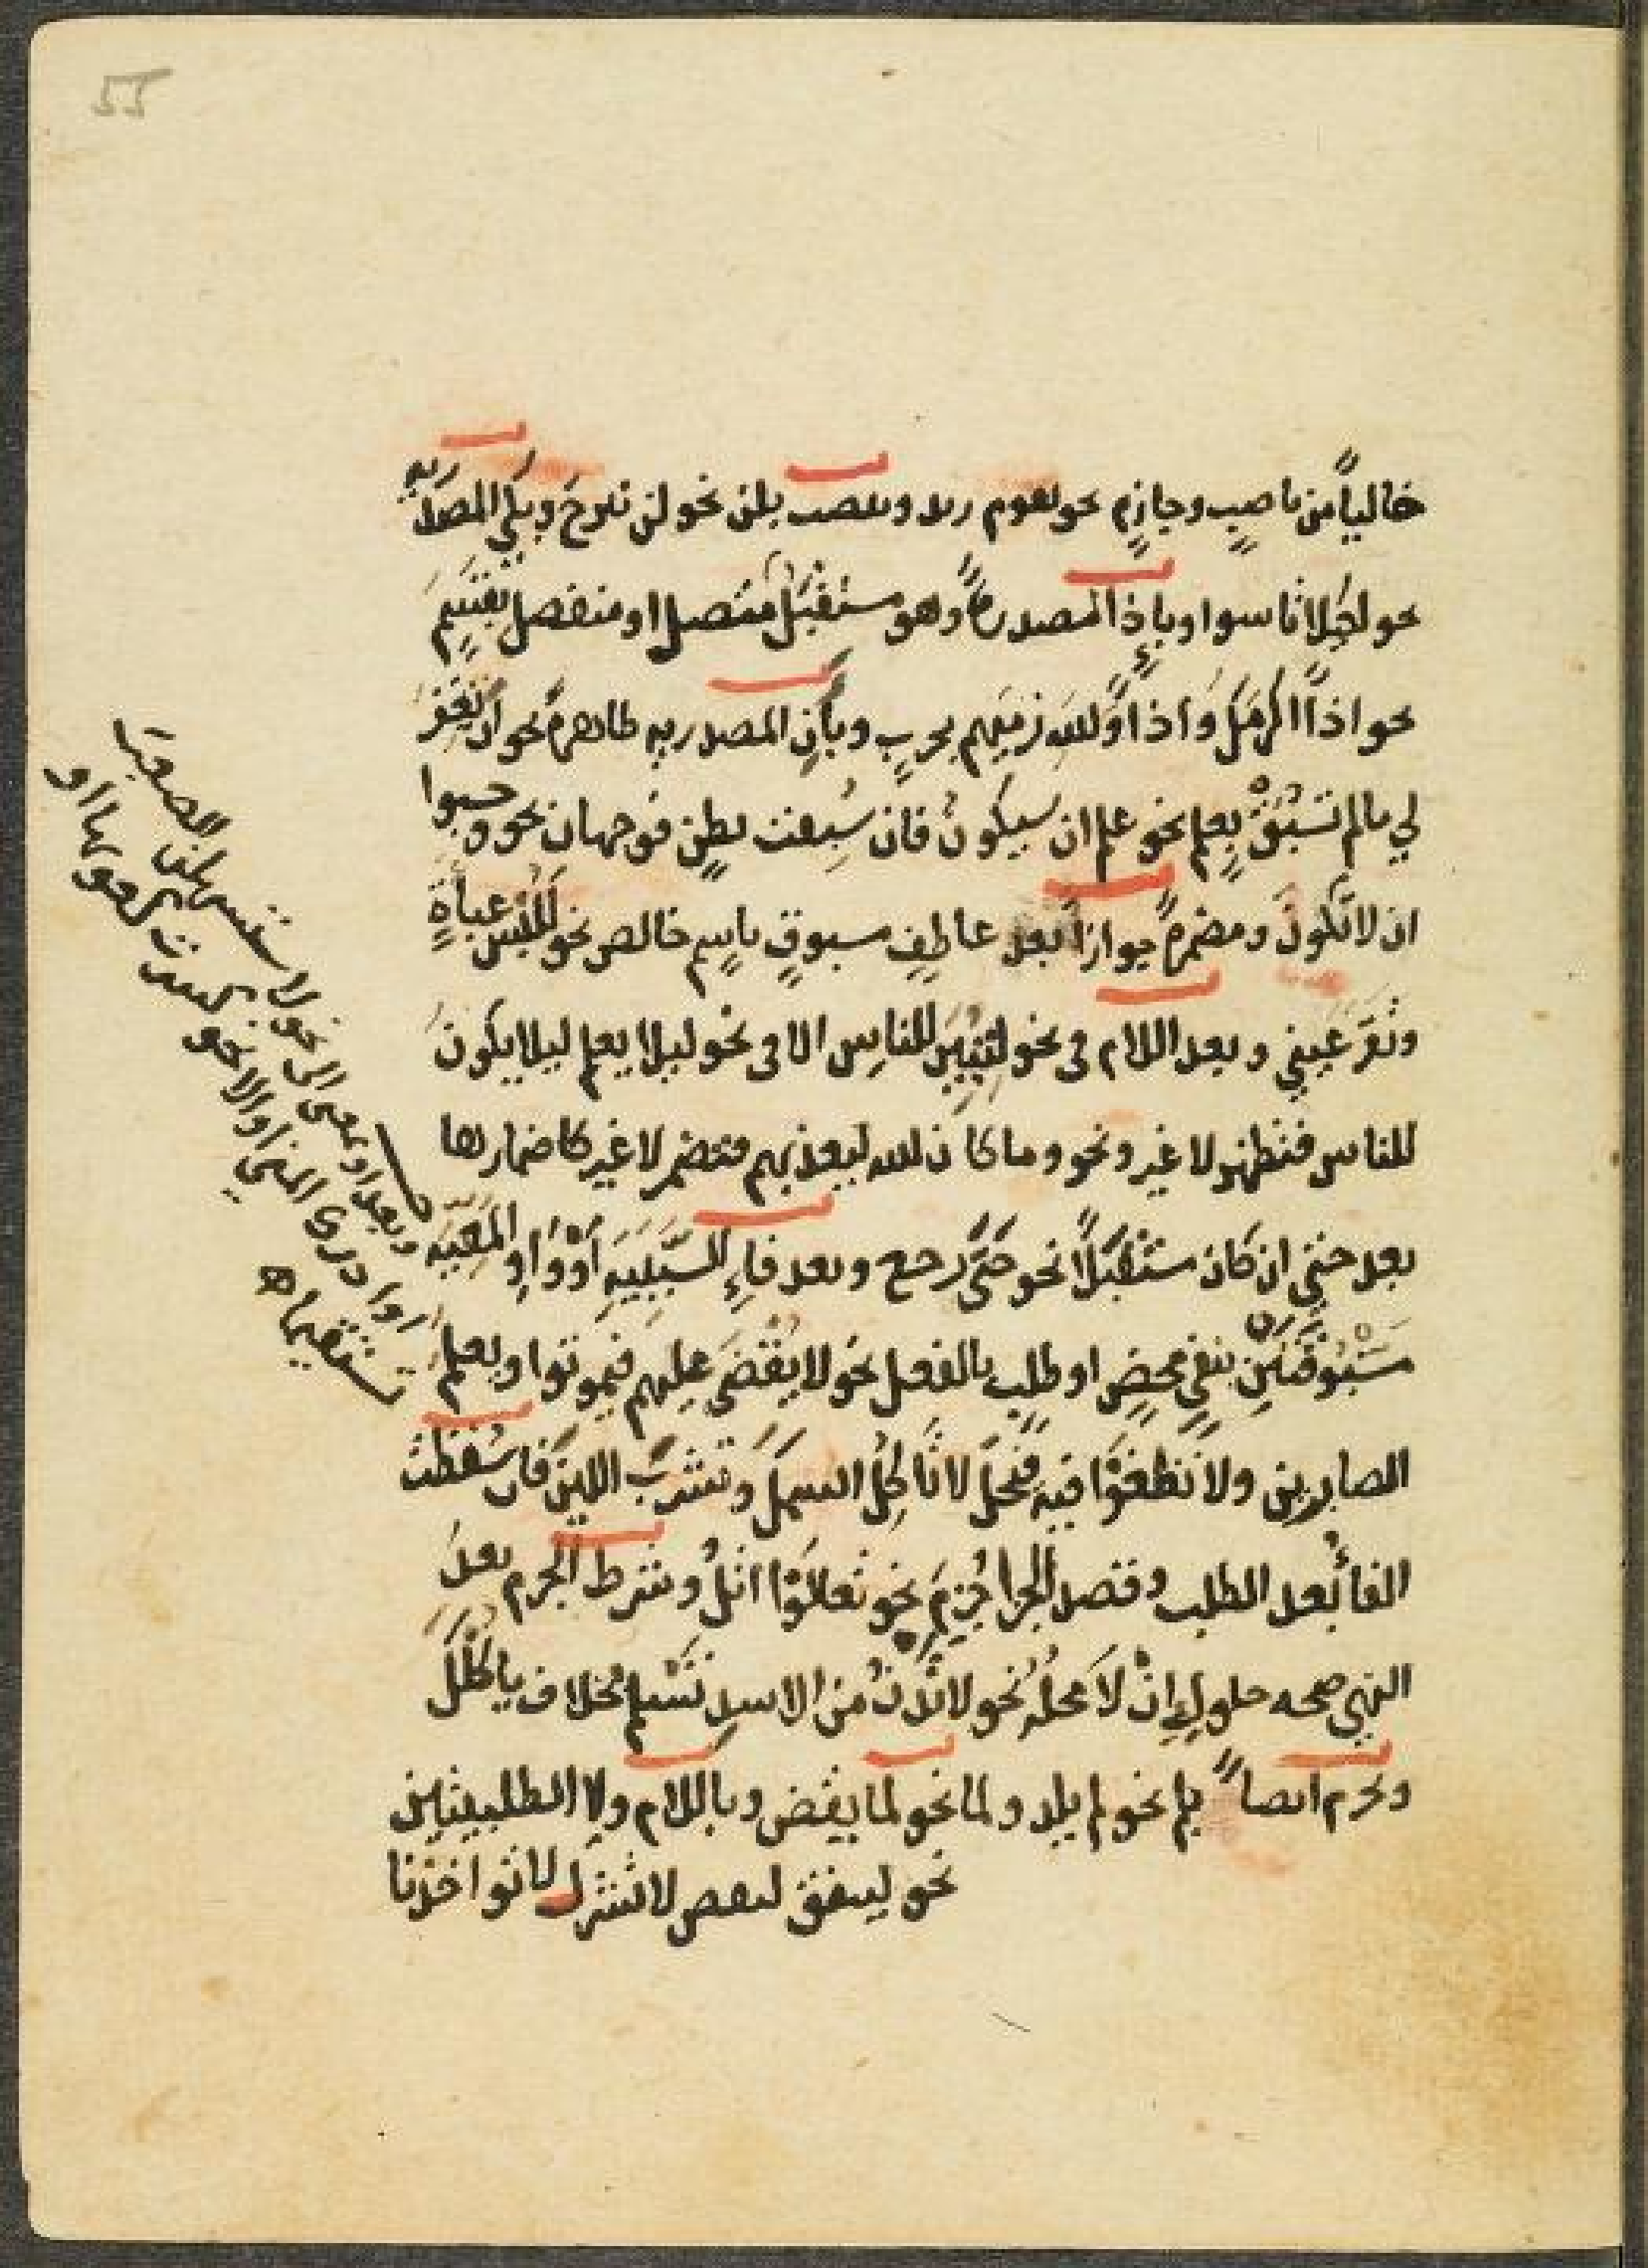 55
خالياً من ناصبٍ وجازمٍ نحو يقوم زيد وينصب بلن نحو لن نبرح وبكي المصدريه
نحو لكيلا تاسوا وباذاً مصدرةً وهو مستقبلٌ متصل او منفصل بقَسَمٍ
نحو اذاً اكرمَك واذاً والله نرميَهم بحربٍ وبأن المصدريه ظاهرةً نحو ان يغفرَ
لي مالم تُسْبَقْ بعلم نحو علم ان سيكونُ فان سُبِقت بظنٍ فوجهان نحو وحسبوا
ان لا تكونَ ومضمرةً جوازاً بعد عاطفٍ مسبوقٍ باسمٍ خالص نحو للبس عباةٍ
وتقرَّ عيني وبعد اللام في نحو لتُبَيِّنَ للناس الا في نحو ليلا يعلم ليلا يكونَ
للناس فتظهر لا غير ونحو وما كان الله ليعذبهم فتضمر لا غير كاضمارها
بعد حتى ان كان مستقبَلاً نحو حتَّى يرجع وبعد فاءِ السَّبَبيهِ أوْ وَاوِ المَعِيَّه
مَسْبُوقَتَيْنِ بنفيٍ محضٍ او طلبٍ بالفعل نحو لا يُقْضَى عليهم فيموتوا ويعلمَ
الصابرين ولا تطغَوْا فيه فيَحِلَّ لا تأكُلُ السمكَ وتشربَ اللبنَ فان سُقطت
الفاءُ بعد الطلب وقصد الجزا جُزِمَ نحو تعالَوْا اتلُ وشرط الجزم بعدَ
النهي صحه حلول إِنْ لَا محلَّه نحو لا تَدْنُ من الاسدِ تَسْلم بخلاف ياكُلُكَ
ويجزم ايضاً بلم نحو لم يلد ولما نحو لما يقض وباللام ولا الطلبيتين
نحو لينفق ليقض لا تشرك لا تواخذنا
وبعد او بمعنى الى نحو لاستسهلن الصعب
او ادرى المنى او الا نحو كسرت كعوبها او
تستقيما ه